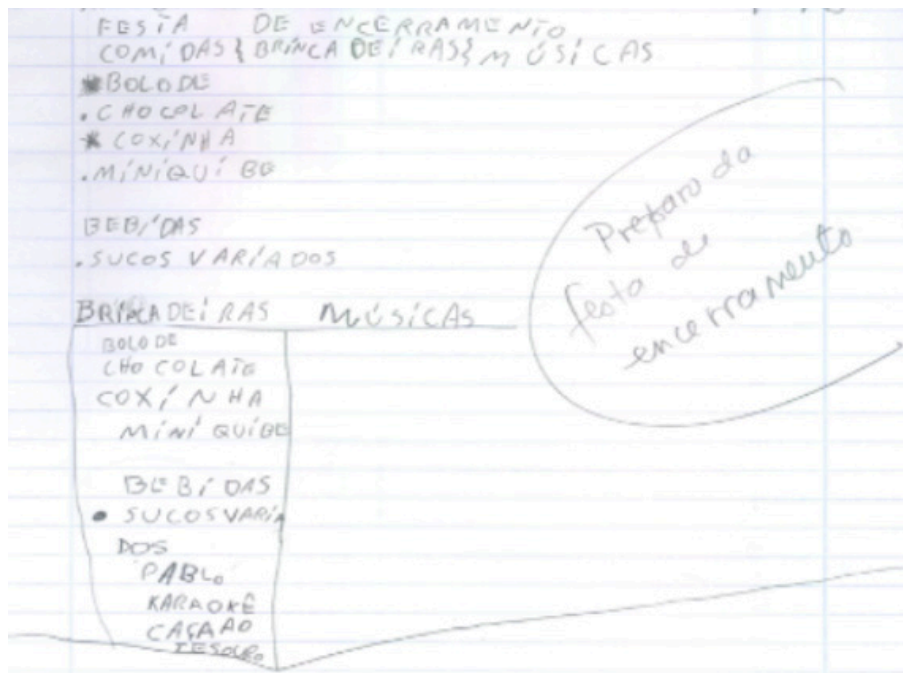 FESTA DE ENCERRAMENTO
COMIDAS { BRINCADEIRAS { MÚSICAS
* BOLO DE
. CHOCOLATE
* COXINHA
. MINIQUIBE
BEBIDAS
. SUCOS VARIADOS
BRINCADEIRAS MÚSICAS
BOLO DE
CHOCOLATE
COXINHA
MINI QUIBE
BEBIDAS
• SUCOS VARIA
DOS
PABLO
KARAOKÊ
CAÇA AO
TESOURO
Preparo da
festa de
encerramento